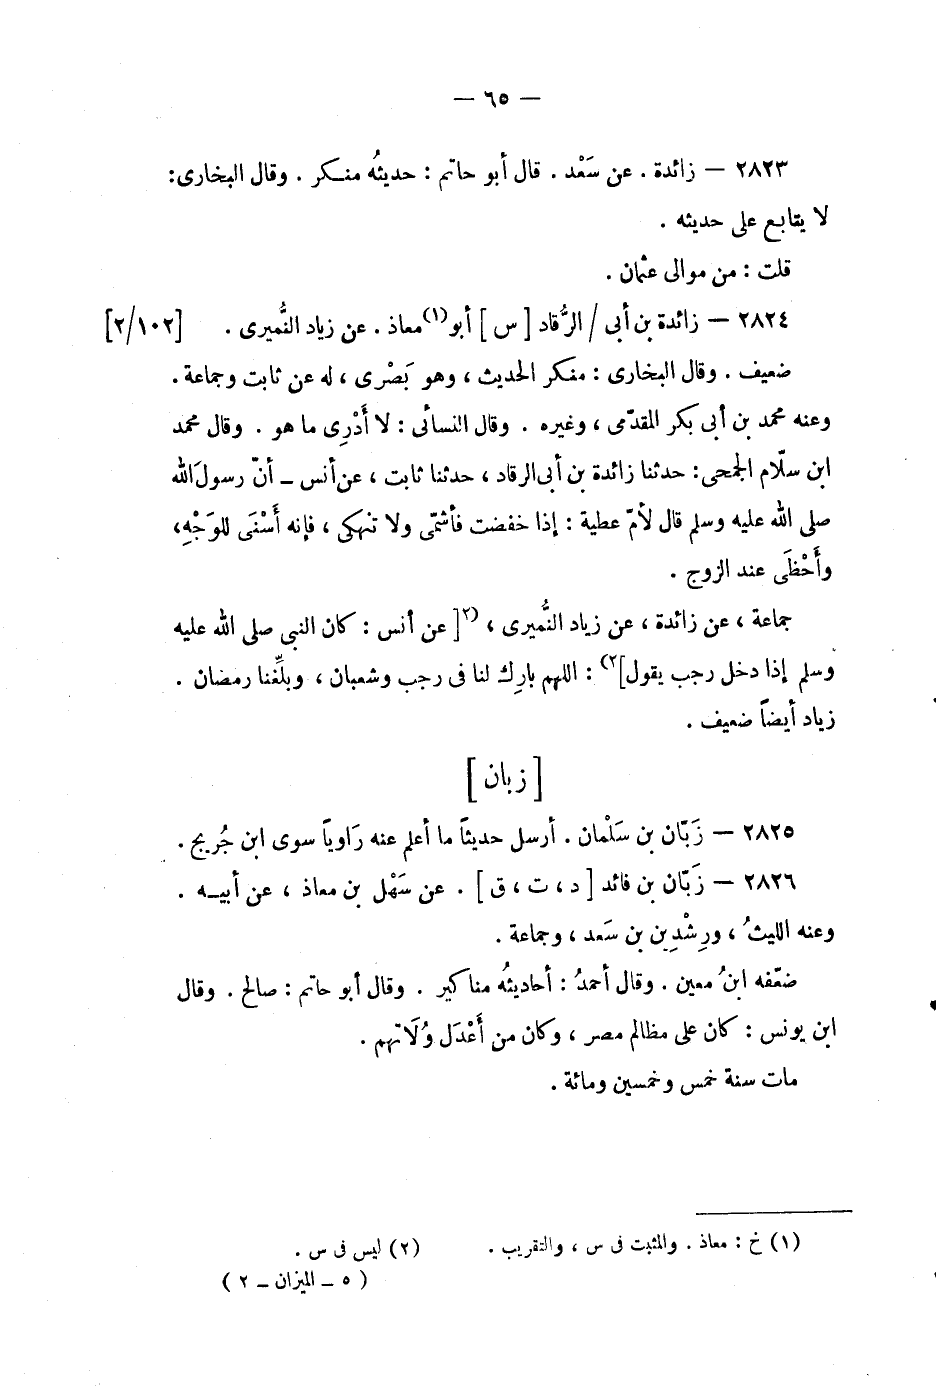 — ٦٥ —
٢٨٢٣ — زائدة . عن سَعْد . قال أبو حاتم : حديثُه منكر . وقال البخارى :
لا يتابع على حديثه .
قلت : من موالى عثمان .
٢٨٢٤ — زائدة بن أبى / الرُّقاد [ س ] أبو(١) معاذ . عن زياد النُّميرى . [٢/١٠٢]
ضعيف . وقال البخارى : منكر الحديث ، وهو بَصْرى ، له عن ثابت وجماعة .
وعنه محمد بن أبى بكر المقدّمى ، وغيره . وقال النسائى : لا أَدْرِى ما هو . وقال محمد
ابن سلّام الجمحى : حدثنا زائدة بن أبى الرقاد ، حدثنا ثابت ، عن أنس – أنّ رسولَ الله
صلى الله عليه وسلم قال لأمّ عطية : إذا خفضت فأشمّى ولا تنهكى ، فإنه أَسْنَى للوَجْهِ،
وأَحْظَى عند الزوج .
جماعة ، عن زائدة ، عن زياد النُّميرى ، (٢)[ عن أنس : كان النبى صلى الله عليه
وسلم إذا دخل رجب يقول](٢) : اللهم بارِك لنا فى رجب وشعبان ، وبلِّغنا رمضان .
زياد أيضاً ضعيف .
[ زبان ]
٢٨٢٥ — زَبّان بن سَلْمان . أرسل حديثاً ما أعلم عنه رَاوياً سوى ابن جُريج .
٢٨٢٦ — زَبّان بن فائد [ د ، ت ، ق ] . عن سَهْل بن معاذ ، عن أبيه .
وعنه الليثُ ، ورِشْدِين بن سَعد ، وجماعة .
ضعّفه ابنُ معين . وقال أحمدُ : أحاديثُه مناكير . وقال أبو حاتم : صالح . وقال
ابن يونس : كان على مظالم مصر ، وكان من أَعْدَل وُلَاتهم .
مات سنة خمس وخمسين ومائة .
(١) خ : معاذ . والمثبت فى س ، والتقريب . (٢) ليس فى س .
( ٥ – الميزان – ٢ )